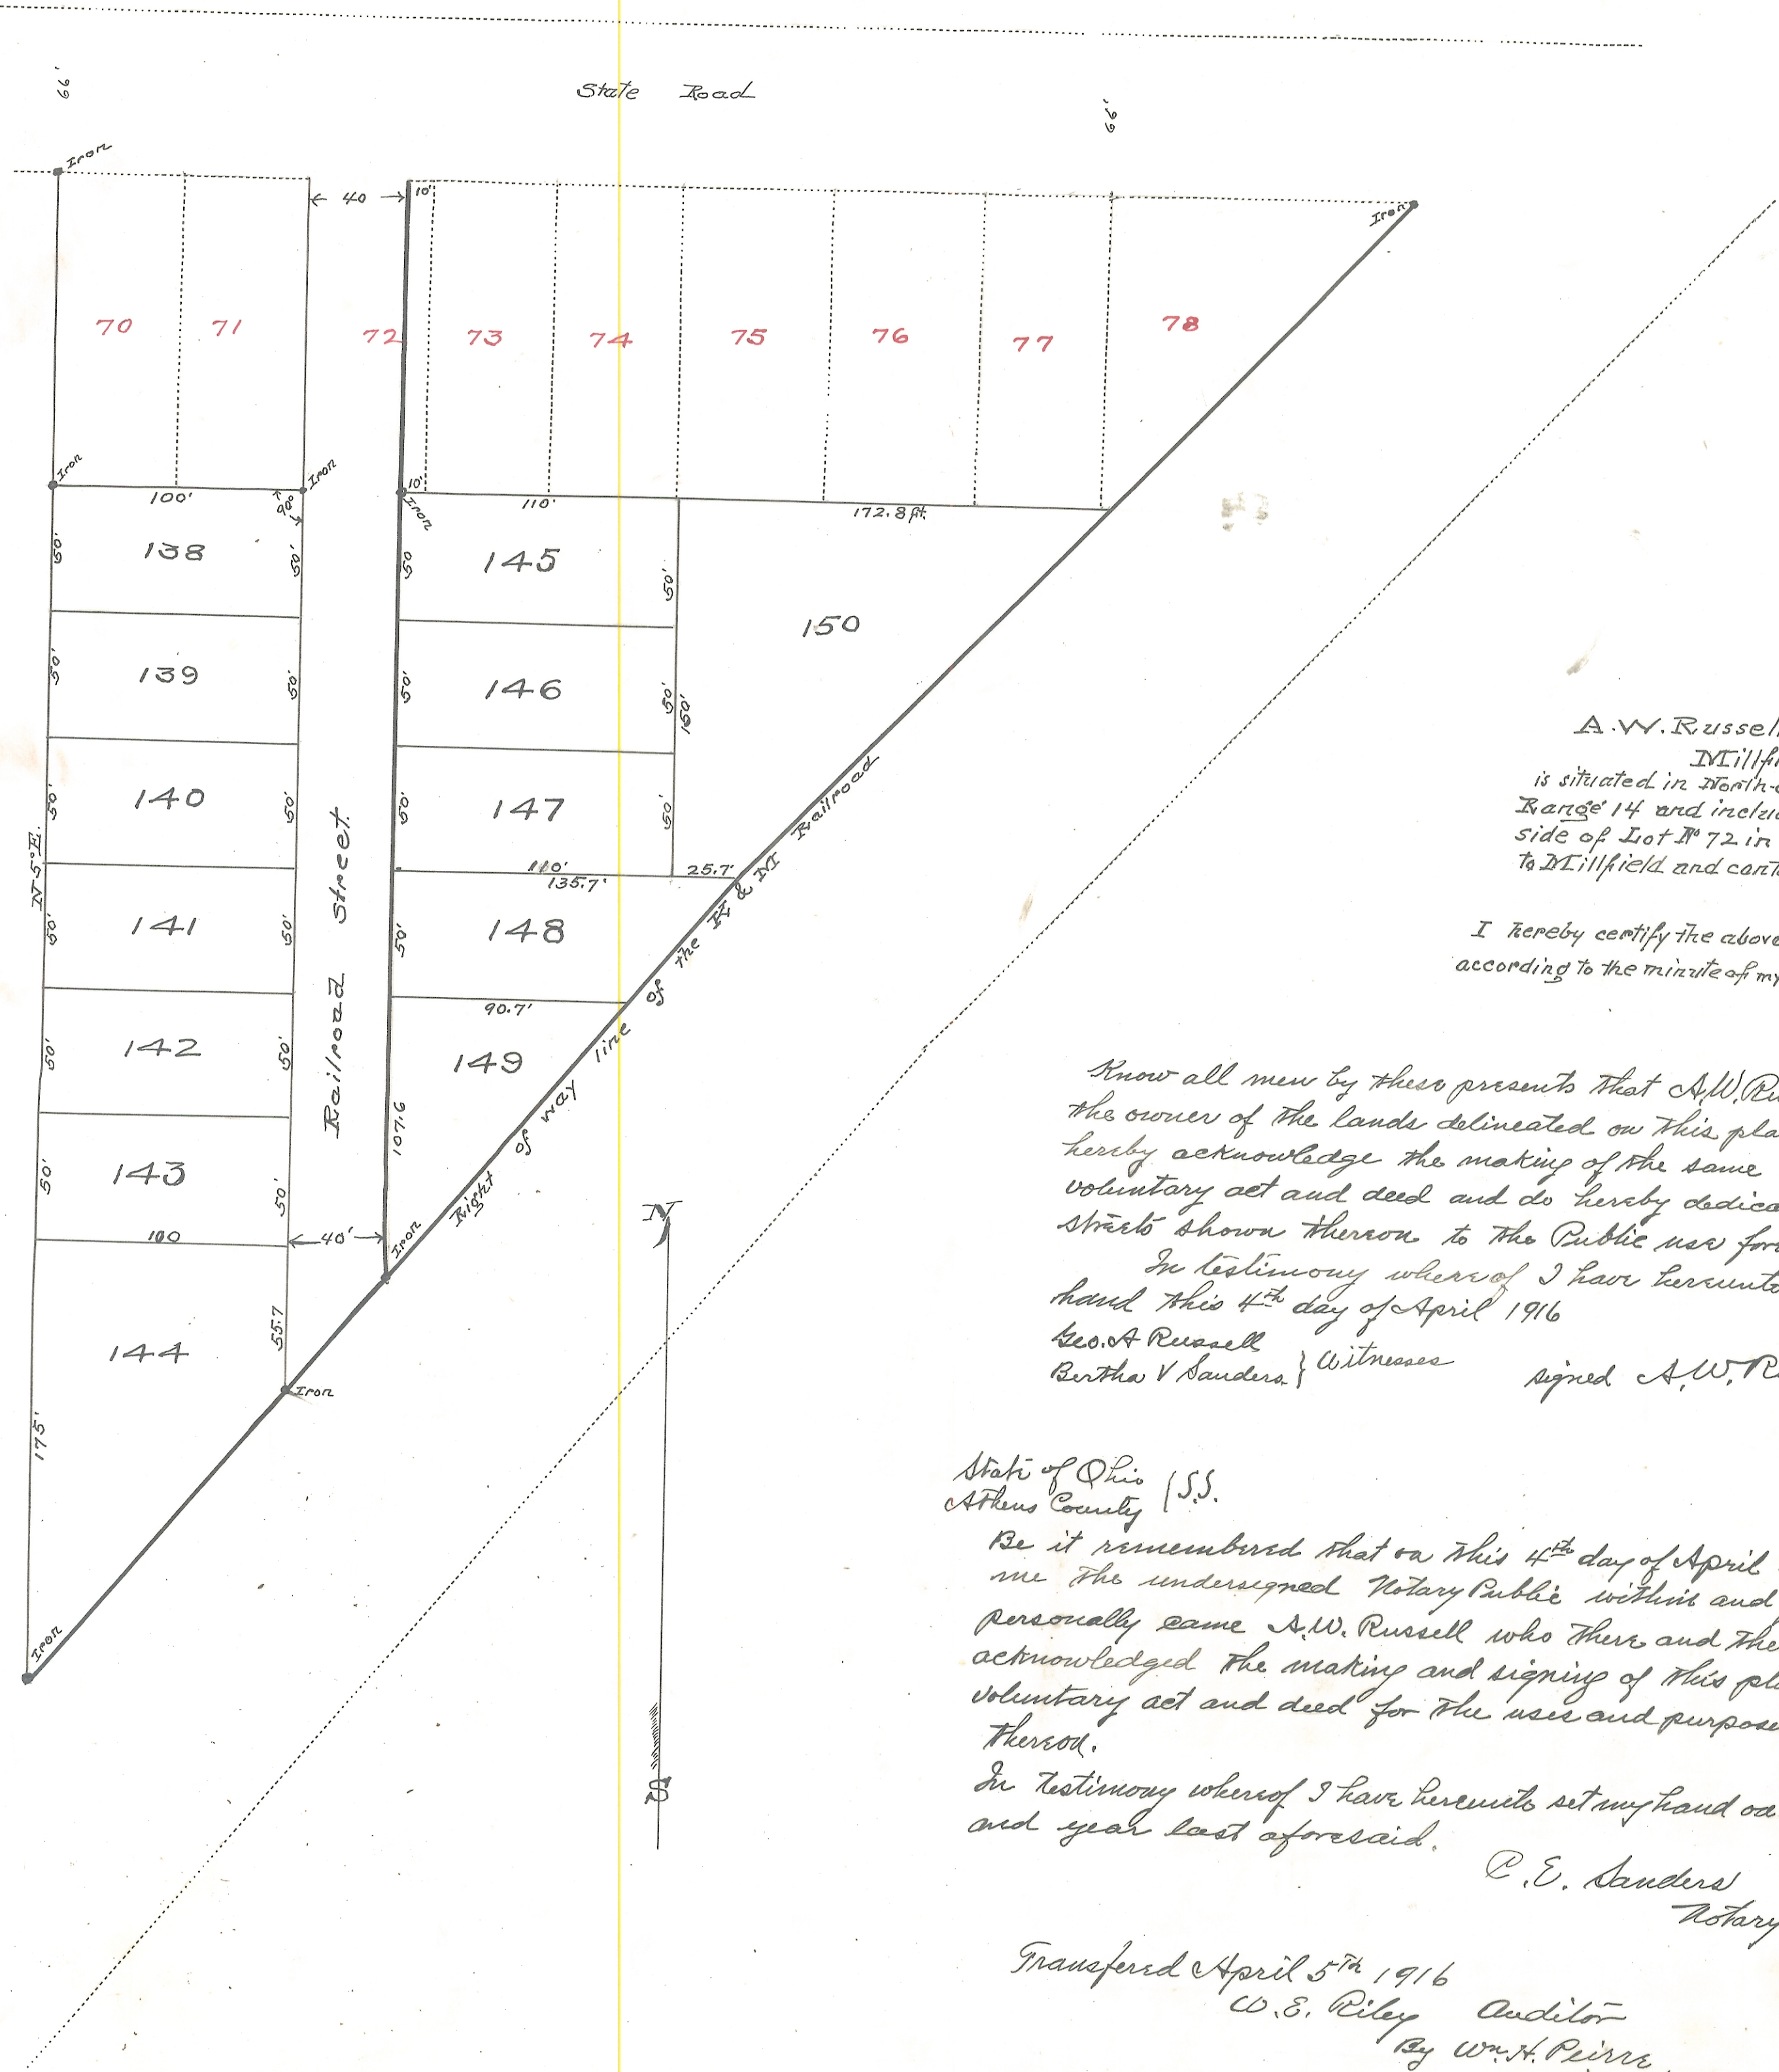 State Road
66'
66'
Iron
← 40 →
10'
Iron
70
71
72
73
74
75
76
77
78
Iron
Iron
10'
Iron
100'
90°
110'
172.8 ft.
50'
138
50'
50
145
50'
150
50'
139
50'
50'
146
50'
150'
50'
140
50'
50'
147
50'
N 5° E.
Railroad Street
110'
135.7'
25.7'
50'
141
50'
50'
148
90.7'
50'
142
50'
149
107.6
50'
143
50'
100
←40'→
Iron
Right of way line of the K & M Railroad
144
55.7
Iron
175'
Iron
N
S
A.W. Russell
is situated in North-
Range 14 and
side of Lot No 72 in
to Millfield and
I hereby certify the above
according to the minute of my
Know all men by these presents that A.W.
the owner of the lands delineated on this
hereby acknowledge the making of the same
voluntary act and deed and do hereby
streets shown thereon to the Public use
In testimony whereof I have hereunto
hand this 4th day of April 1916
Geo. A Russell
Bertha V Sanders } Witnesses
signed A.W. R
State of Ohio
Athens County } S.S.
Be it remembered that on this 4th day of April
me the undersigned Notary Public within and
personally came A.W. Russell who there and
acknowledged the making and signing of this
voluntary act and deed for the uses and
thereon.
In testimony whereof I have hereunto set my hand on
and year last aforesaid.
C.E. Sanders
Notary
Transfered April 5th 1916
W.E. Riley Auditor
By Wm. H. Peirre